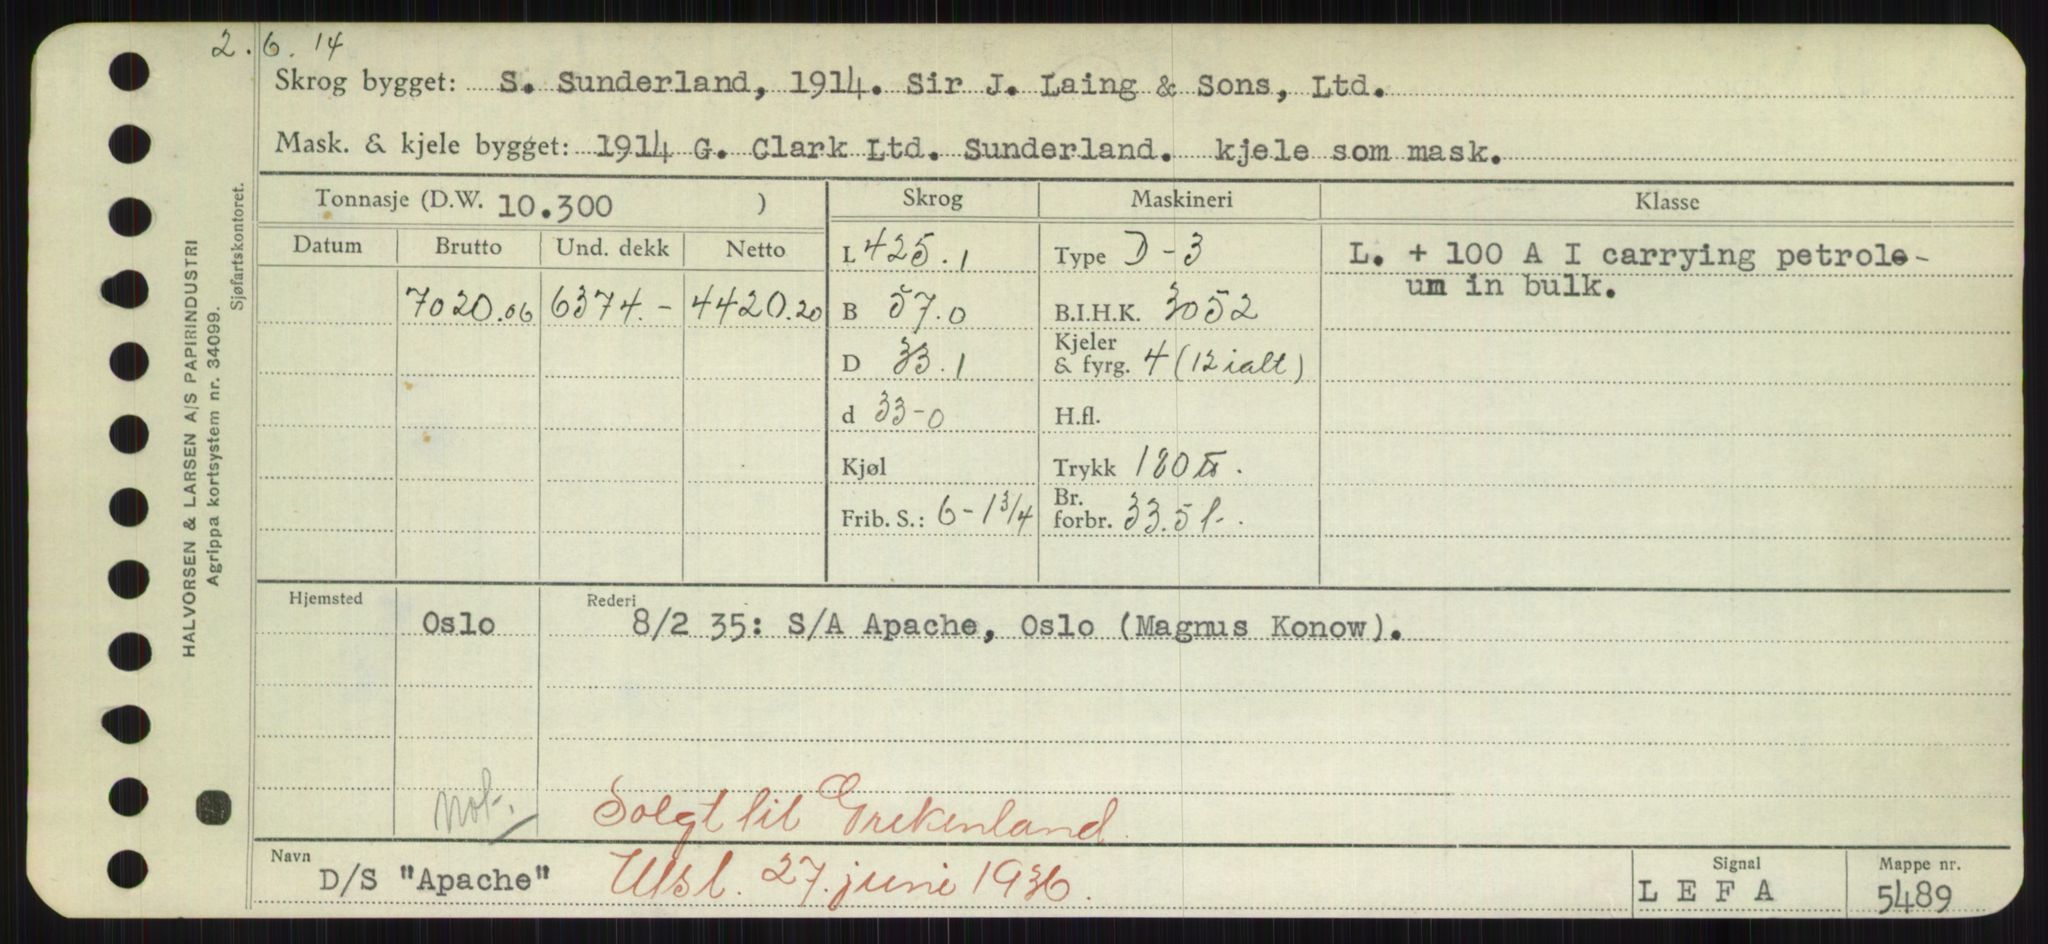 2.6.14
Skrog bygget: S. Sunderland, 1914. Sir J. Laing & Sons, Ltd.
Mask. & kjele bygget: 1914 G. Clark Ltd. Sunderland. kjele som mask.
Tonnasje (D.W. 10.300 ) Skrog Maskineri Klasse
Datum Brutto Und. dekk Netto
L 425.1 Type D-3 L. + 100 A I carrying petrole-
um in bulk.
7020.06 6374.- 4420.20 B 57.0 B.I.H.K. 3052
D 33.1 Kjeler & fyrg. 4 (12 ialt)
d 33-0 H.fl.
Kjøl Trykk 180 lb.
Frib. S.: 6-1 3/4 Br. forbr. 33.5 t.
Hjemsted Rederi
Oslo 8/2 35: S/A Apache, Oslo (Magnus Konow).
not. Solgt til Grekenland
Navn D/S "Apache" Utsl. 27. juni 1936.
Signal L E F A
Mappe nr. 5489
HALVORSEN & LARSEN A/S PAPIRINDUSTRI
Agrippa kortsystem nr. 34099.
Sjøfartskontoret.